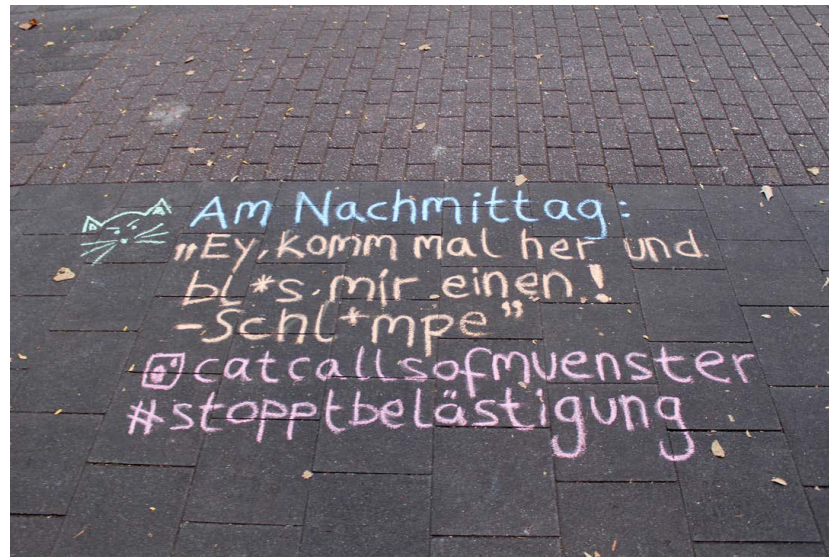 Am Nachmittag:
„Ey, komm mal her und
bl*s mir einen!
-Schl*mpe”
@catcallsofmuenster
#stopptbelästigung